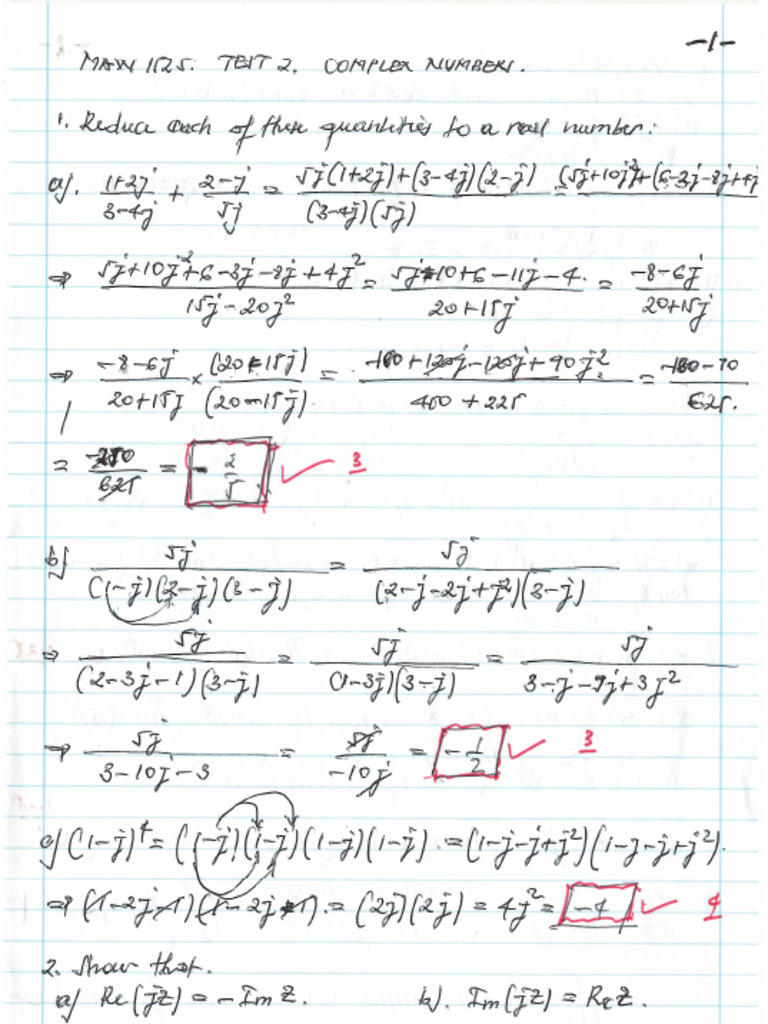 -1-
MATH 1525. TEST 2. COMPLEX NUMBERS.
1. Reduce each of these quantities to a real number:
a). (1+2j)/(3-4j) + (2-j)/(5j) = (5j(1+2j)+(3-4j)(2-j))/((3-4j)(5j)) = (5j+10j²)+(6-3j-8j+4j
⇒ (5j+10j²+6-3j-8j+4j²)/(15j-20j²) = (5j-10+6-11j-4)/(20+15j) = (-8-6j)/(20+15j)
⇒ (-8-6j)/(20+15j) × (20-15j)/(20-15j) = (-160+120j-120j+90j²)/(400+225) = (-160-90)/625.
= -250/625 = -2/5 ✓ 3
b) 5j/((1-j)(2-j)(3-j)) = 5j/((2-j-2j+j²)(3-j))
⇒ 5j/((2-3j-1)(3-j)) = 5j/((1-3j)(3-j)) = 5j/(3-j-9j+3j²)
⇒ 5j/(3-10j-3) = 5j/(-10j) = -1/2 ✓ 3
c) (1-j)⁴ = (1-j)(1-j)(1-j)(1-j). = (1-j-j+j²)(1-j-j+j²).
⇒ (1-2j-1)(1-2j-1). = (2j)(2j) = 4j² = -4 ✓ 4
2. Show that.
a) Re(jz) = -Im z. b). Im(jz) = Re z.